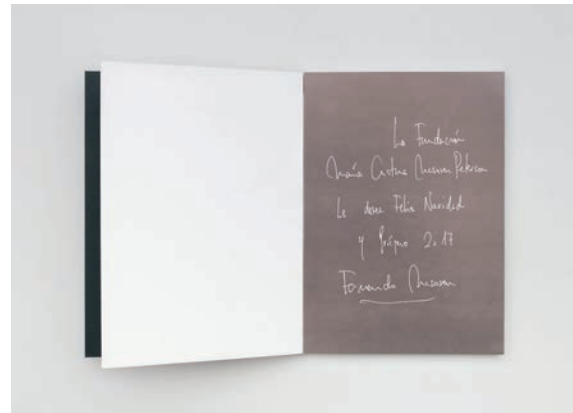 La Fundación
María Cristina Masaveu Peterson
Le desea Feliz Navidad
y Próspero 2017
Fernando Masaveu